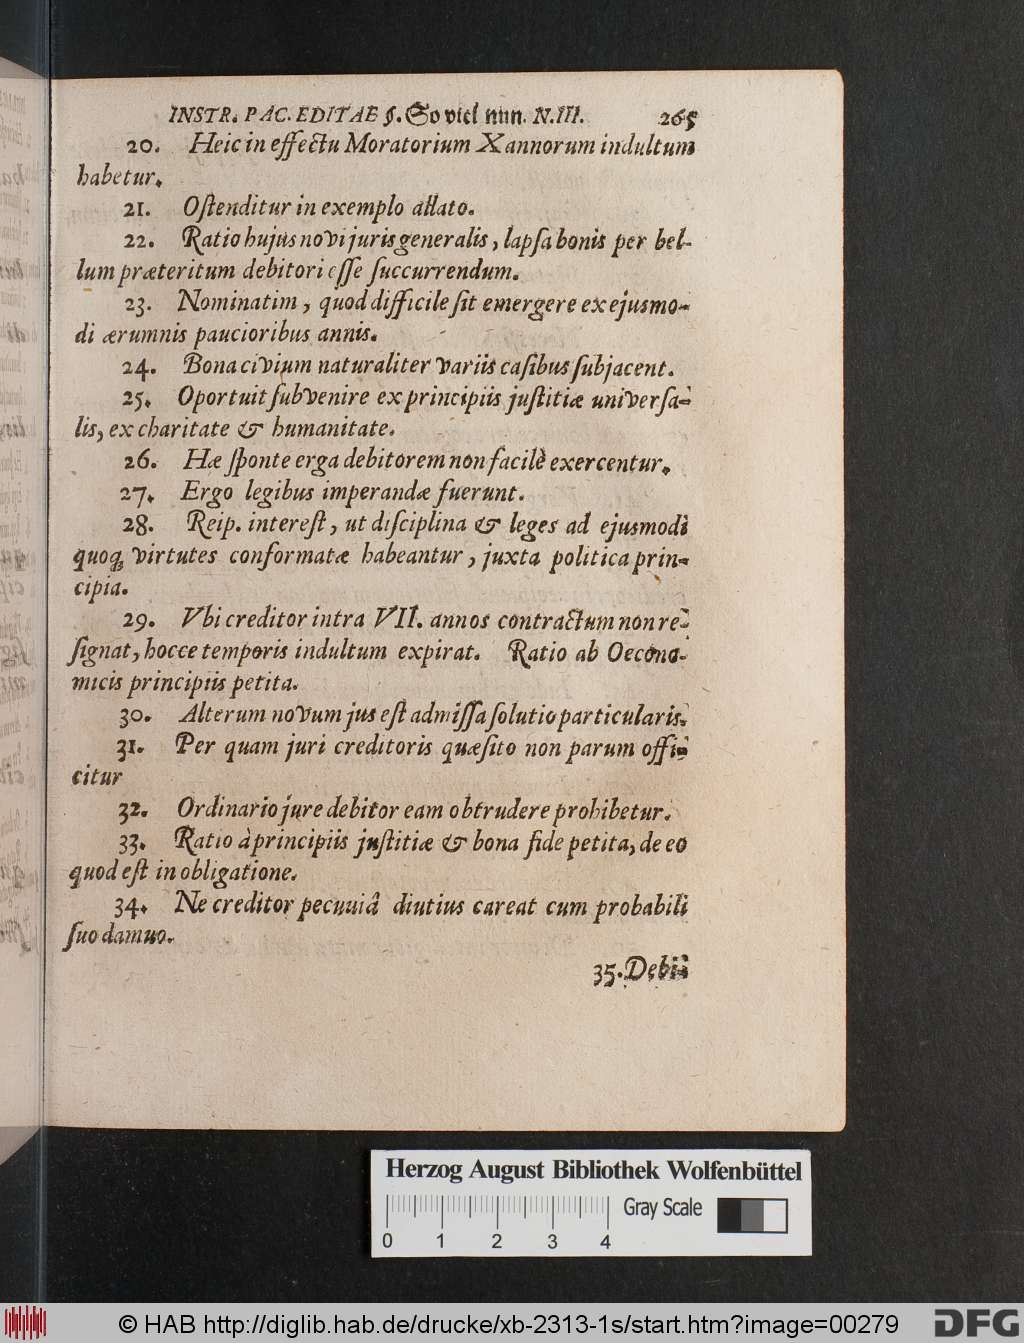 INSTR. PAC. EDITAE §. So viel nun. N. III. 265
20. Heic in effectu Moratorium X annorum indultum
habetur.
21. Oſtenditur in exemplo allato.
22. Ratio hujus novi juris generalis, lapſa bonis per bel-
lum præteritum debitori eſſe ſuccurrendum.
23. Nominatim, quod difficile ſit emergere ex ejusmo-
di ærumnis paucioribus annis.
24. Bona civium naturaliter variis caſibus ſubjacent.
25. Oportuit ſubvenire ex principiis juſtitiæ univerſa-
lis, ex charitate & humanitate.
26. Hæ ſponte erga debitorem non facilè exercentur.
27. Ergo legibus imperandæ fuerunt.
28. Reip. intereſt, ut diſciplina & leges ad ejusmodi
quoq; virtutes conformatæ habeantur, juxta politica prin-
cipia.
29. Vbi creditor intra VII. annos contractum non re-
ſignat, hocce temporis indultum expirat. Ratio ab Oecono-
micis principiis petita.
30. Alterum novum jus eſt admiſſa ſolutio particularis.
31. Per quam juri creditoris quæſito non parum offi-
citur
32. Ordinario jure debitor eam obtrudere prohibetur.
33. Ratio à principiis juſtitiæ & bona fide petita, de eo
quod eſt in obligatione.
34. Ne creditor pecuuiâ diutius careat cum probabili
ſuo damno.
35. Debi-
Herzog August Bibliothek Wolfenbüttel
Gray Scale
0 1 2 3 4
© HAB http://diglib.hab.de/drucke/xb-2313-1s/start.htm?image=00279
DFG